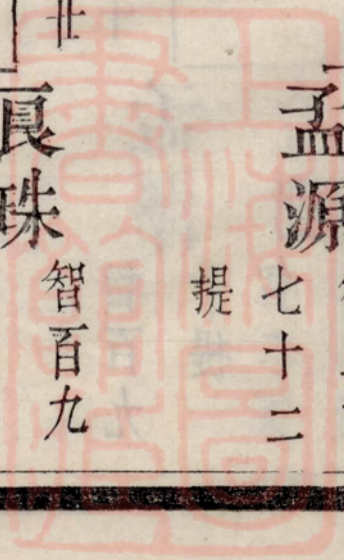 孟源
七十二
提
廿
良珠
智百九